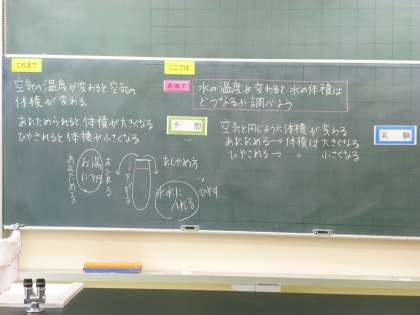 これまで
空気の温度が変わると空気の
体積が変わる。
あたためられると体積が大きくなる
ひやされると体積が小さくなる
ここでは
めあて
水の温度を変わると水の体積は
どうなるか調べよう
予想
空気と同じように体積が変わる
あたためる→体積は大きくなる
ひやされる→〃 小さくなる
実験
たしかめ方
あたためる
お湯
氷水に
入れる
ひやす